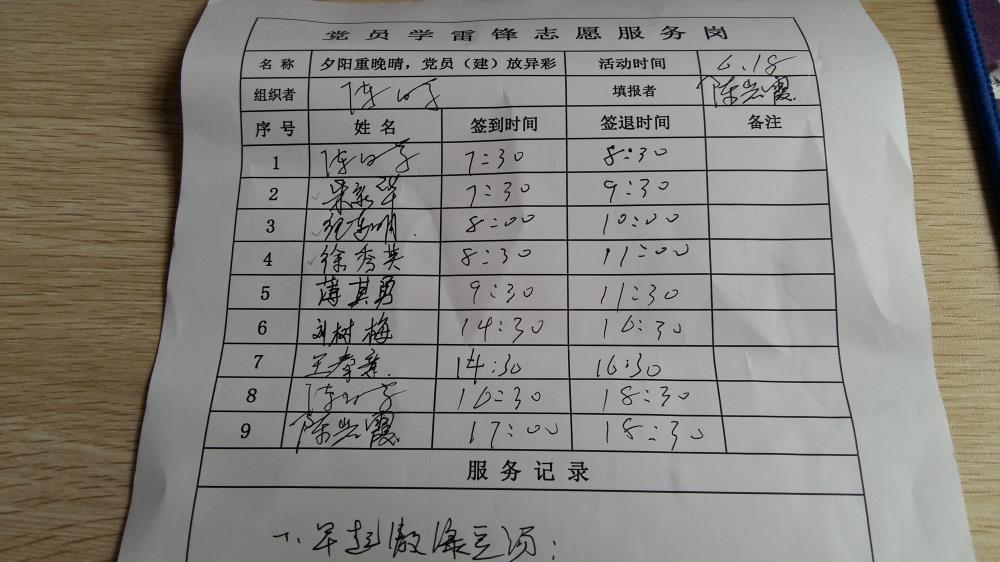 党员学雷锋志愿服务岗
名称 夕阳重晚晴，党员（建）放异彩 活动时间 6.18
组织者 填报者 陈岩霞
序号 姓名 签到时间 签退时间 备注
1 7:30 8:30
2 7:30 9:30
3 8:00 10:00
4 徐秀英 8:30 11:00
5 薄其勇 9:30 11:30
6 刘树梅 14:30 16:30
7 14:30 16:30
8 16:30 18:30
9 陈岩霞 17:00 18:30
服务记录
1、早起熬绿豆汤；